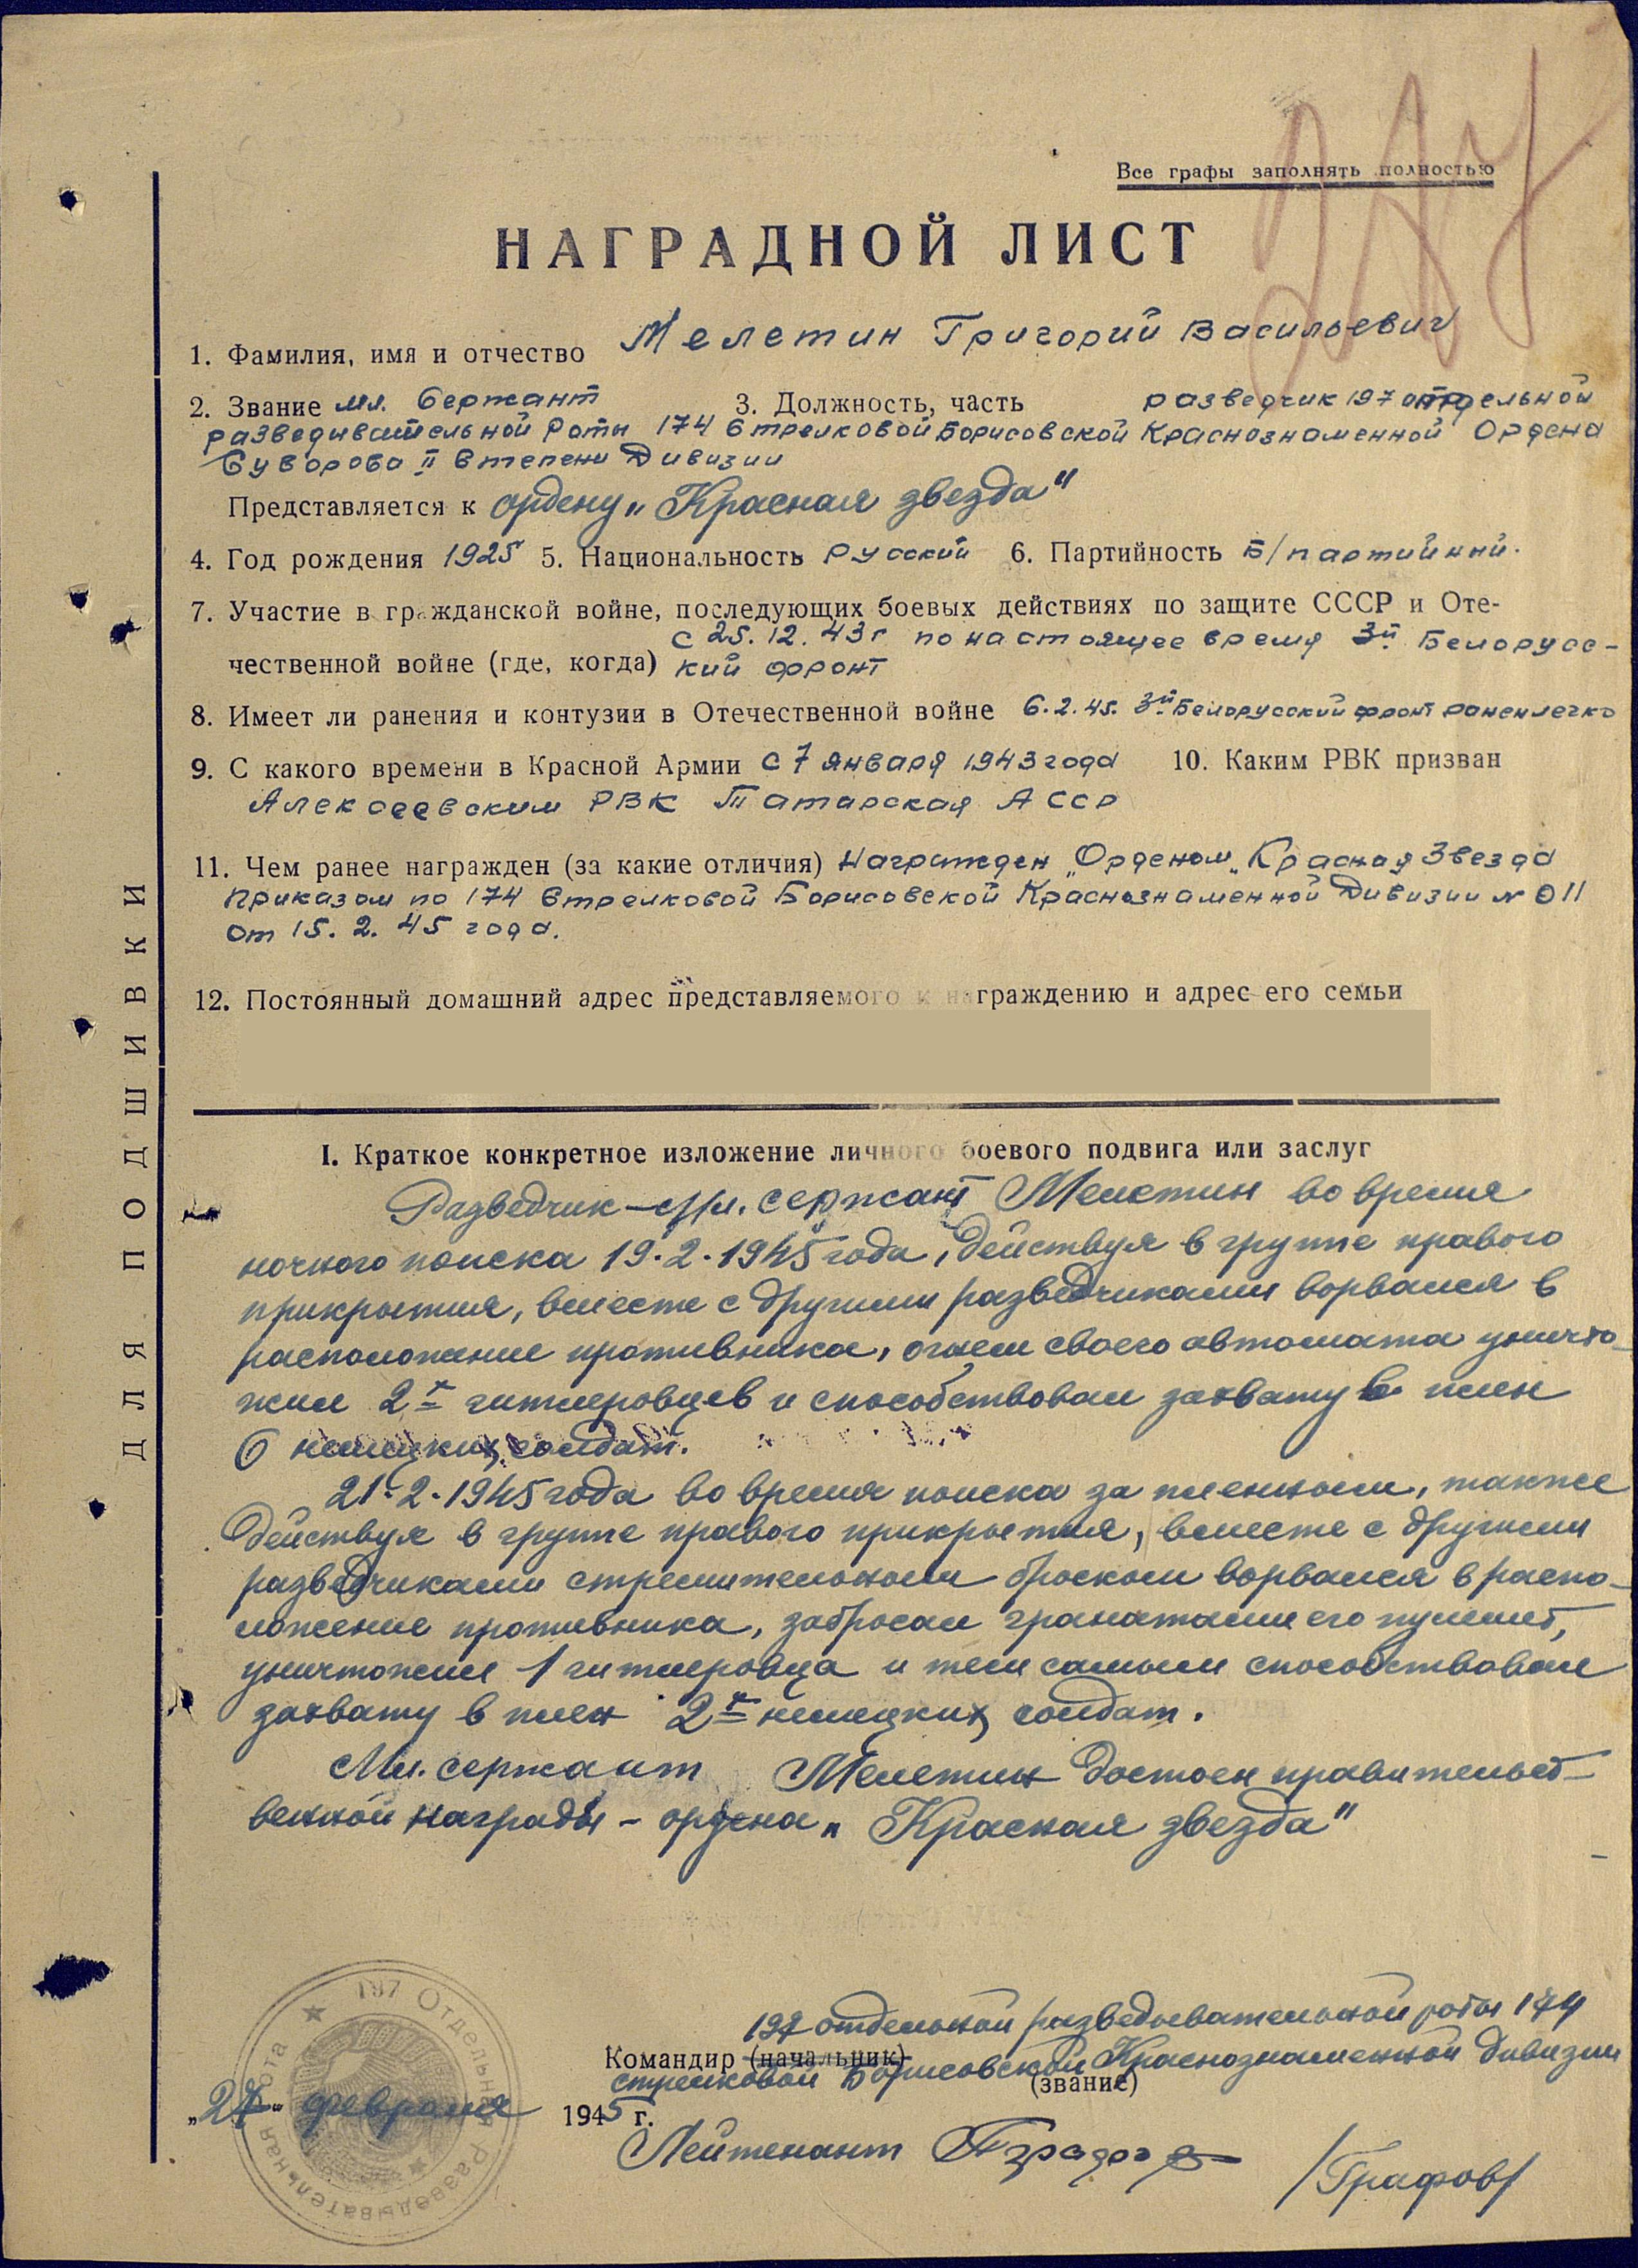 Все графы заполнять полностью
НАГРАДНОЙ ЛИСТ
1. Фамилия, имя и отчество Мелетин Григорий Васильевич
2. Звание мл. Сержант 3. Должность, часть разведчик 197 отдельной
разведывательной роты 174 Стрелковой Борисовской Краснознаменной Ордена
Суворова II Степени Дивизии
Представляется к ордену „Красная звезда"
4. Год рождения 1925 5. Национальность Русский 6. Партийность Б/партийный.
7. Участие в гражданской войне, последующих боевых действиях по защите СССР и Оте-
с 25.12.43г по настоящее время 3й Белорусс-
чественной войне (где, когда) кий фронт
8. Имеет ли ранения и контузии в Отечественной войне 6.2.45. 3й Белорусский фронт ранен легко
9. С какого времени в Красной Армии с 7 января 1943 года 10. Каким РВК призван
Алексеевским РВК Татарская АССР
11. Чем ранее награжден (за какие отличия) Награжден „Орденом „Красная Звезда
Приказом по 174 Стрелковой Борисовской Краснознаменной Дивизии № 011
от 15.2.45 года.
12. Постоянный домашний адрес представляемого к награждению и адрес его семьи
ДЛЯ ПОДШИВКИ
I. Краткое конкретное изложение личного боевого подвига или заслуг
Разведчик – мл. сержант Мелетин во время
ночного поиска 19.2.1945 года, действуя в группе правого
прикрытия, вместе с другими разведчиками ворвался в
расположение противника, огнем своего автомата уничто-
жил 2х гитлеровцев и способствовал захвату в плен
6 немецких солдат.
21.2.1945 года во время поиска за пленным, также
действуя в группе правого прикрытия, вместе с другими
разведчиками стремительным броском ворвался в распо-
ложение противника, забросал гранатами его пулемёт,
уничтожил 1 гитлеровца и тем самым способствовал
захвату в плен 2х немецких солдат.
Мл. сержант Мелетин достоен правительст-
венной награды – ордена „Красная звезда"
197 отдельной разведывательной роты 174
Командир (начальник)
стрелковой Борисовской Краснознаменной дивизии
(звание)
197 Отдельная Разведывательная рота
„ февраля 1945 г.
Лейтенант /Графов/